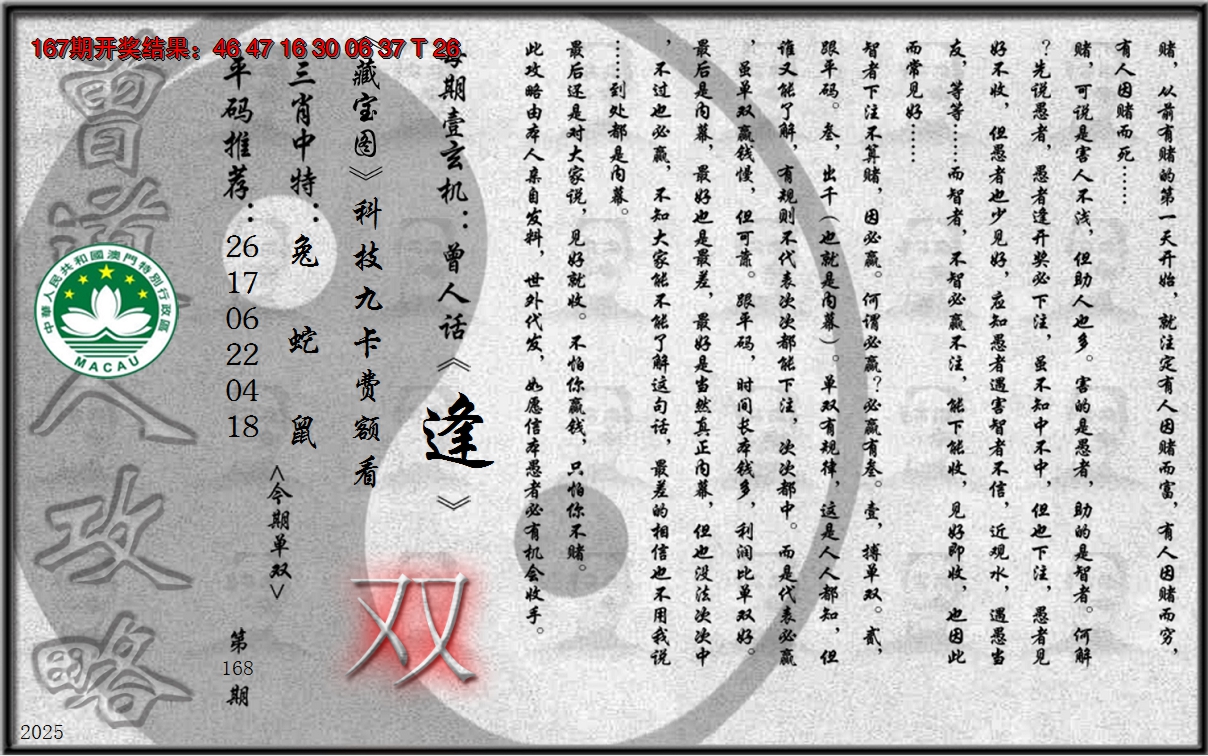 167期开奖结果：46 47 16 30 06 37 T 26
赌，从前有赌的第一天开始，就注定有人因赌而富，有人因赌而穷，
有人因赌而死……
赌，可说是害人不浅，但助人也多。害的是愚者，助的是智者。何解
？先说愚者，愚者逢开奖必下注，虽不知中不中，但也下注，愚者见
好不收，但愚者也少见好，应知愚者遇害智者不信，近观水，遇愚当
友，等等……而智者，不智必赢不注，能下能收，见好即收，也因此
而常见好……
智者下注不算赌，因必赢。何谓必赢？必赢有叁。壹，搏单双。贰，
跟平码。叁，出千（也就是内幕）。单双有规律，这是人人都知，但
谁又能了解，有规则不代表次次都能下注，次次都中。而是代表必赢
，虽单双赢钱慢，但可靠。跟平码，时间长本钱多，利润比单双好。
最后是内幕，最好也是最差，最好是当然真正内幕，但也没法次次中
，不过也必赢，不知大家能不能了解这句话，最差的相信也不用我说
……到处都是内幕。
最后还是对大家说，见好就收。不怕你赢钱，只怕你不赌。
此攻略由本人亲自发料，世外代发，如愿信本愚者必有机会收手。
每期壹玄机：曾人话《逢》
《藏宝图》科技九卡费额看
三肖中特：兔 蛇 鼠
<今期单双>
双
平码推荐：
26
17
06
22
04
18
第
168
期
曾道人攻略
中華人民共和國澳門特別行政區
MACAU
2025